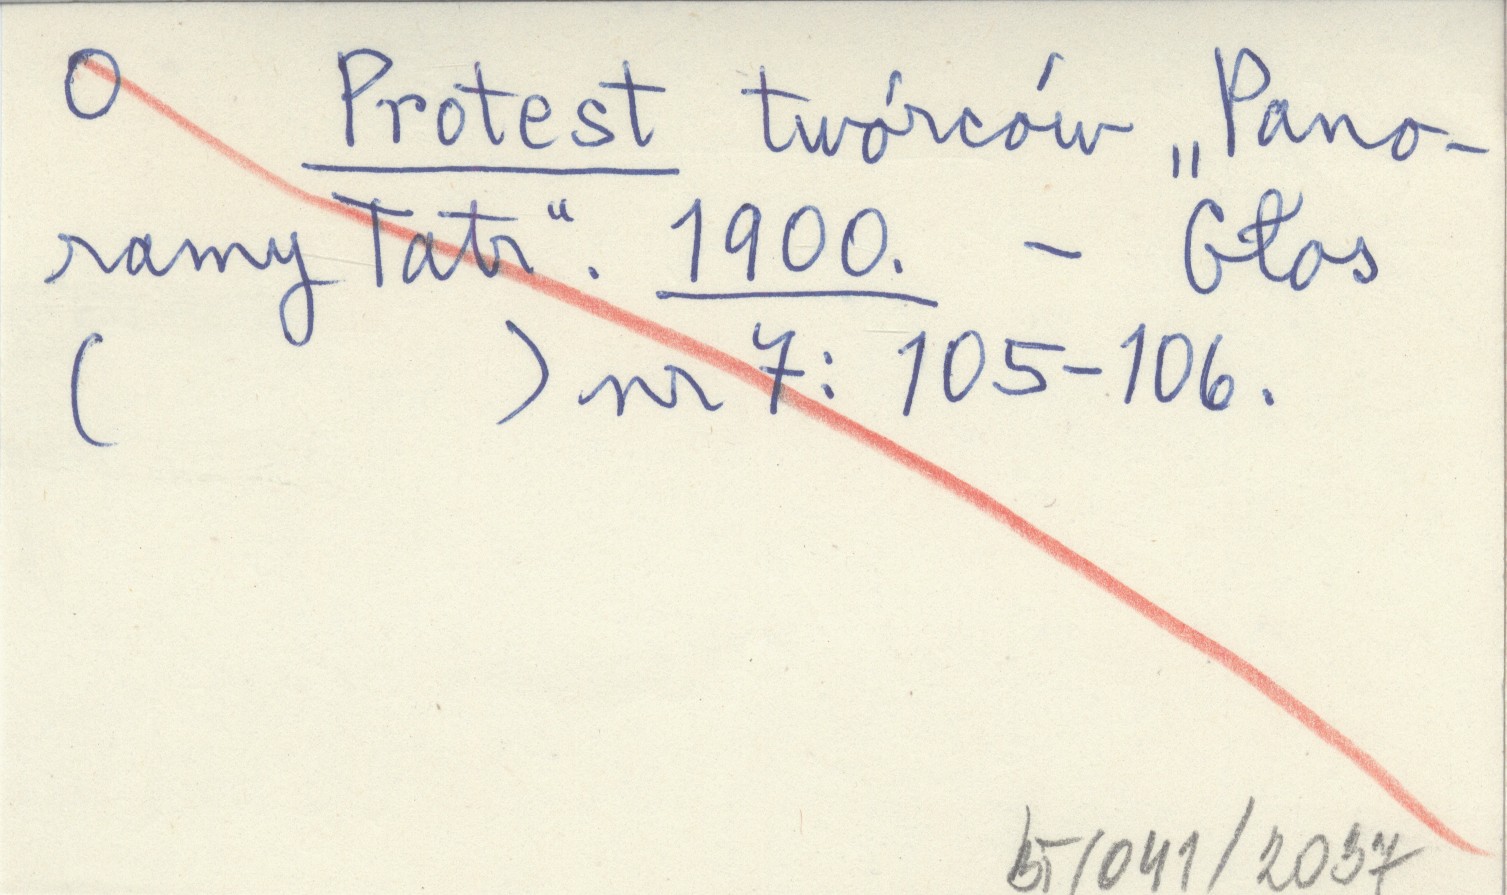 O Protest twórców „Pano-
ramy Tatr“. 1900. - Głos
( ) nr 7: 105-106.
/041/2037